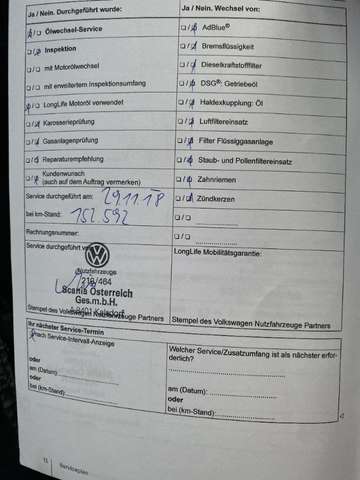 Ja / Nein. Durchgeführt wurde:
Ölwechsel-Service
Inspektion
mit Motorölwechsel
mit erweitertem Inspektionsumfang
LongLife Motoröl verwendet
Karosserieprüfung
Gasanlagenprüfung
Reparaturempfehlung
Kundenwunsch
(auch auf dem Auftrag vermerken)
Service durchgeführt am: 29.11.18
bei km-Stand: 152.592
Rechnungsnummer:
Service durchgeführt von:
Nutzfahrzeuge
219/464
Scania Österreich
Ges.m.b.H.
Stempel des Volkswagen Nutzfahrzeuge Partners
Ja / Nein. Wechsel von:
AdBlue®
Bremsflüssigkeit
Dieselkraftstofffilter
DSG®: Getriebeöl
Haldexkupplung: Öl
Luftfiltereinsatz
Filter Flüssiggasanlage
Staub- und Pollenfiltereinsatz
Zahnriemen
Zündkerzen
LongLife Mobilitätsgarantie:
Stempel des Volkswagen Nutzfahrzeuge Partners
Ihr nächster Service-Termin
Nach Service-Intervall-Anzeige
oder
am (Datum):
oder
bei (km-Stand):
Welcher Service/Zusatzumfang ist als nächster erfor-
derlich?
am (Datum):
oder
bei (km-Stand):
Serviceplan